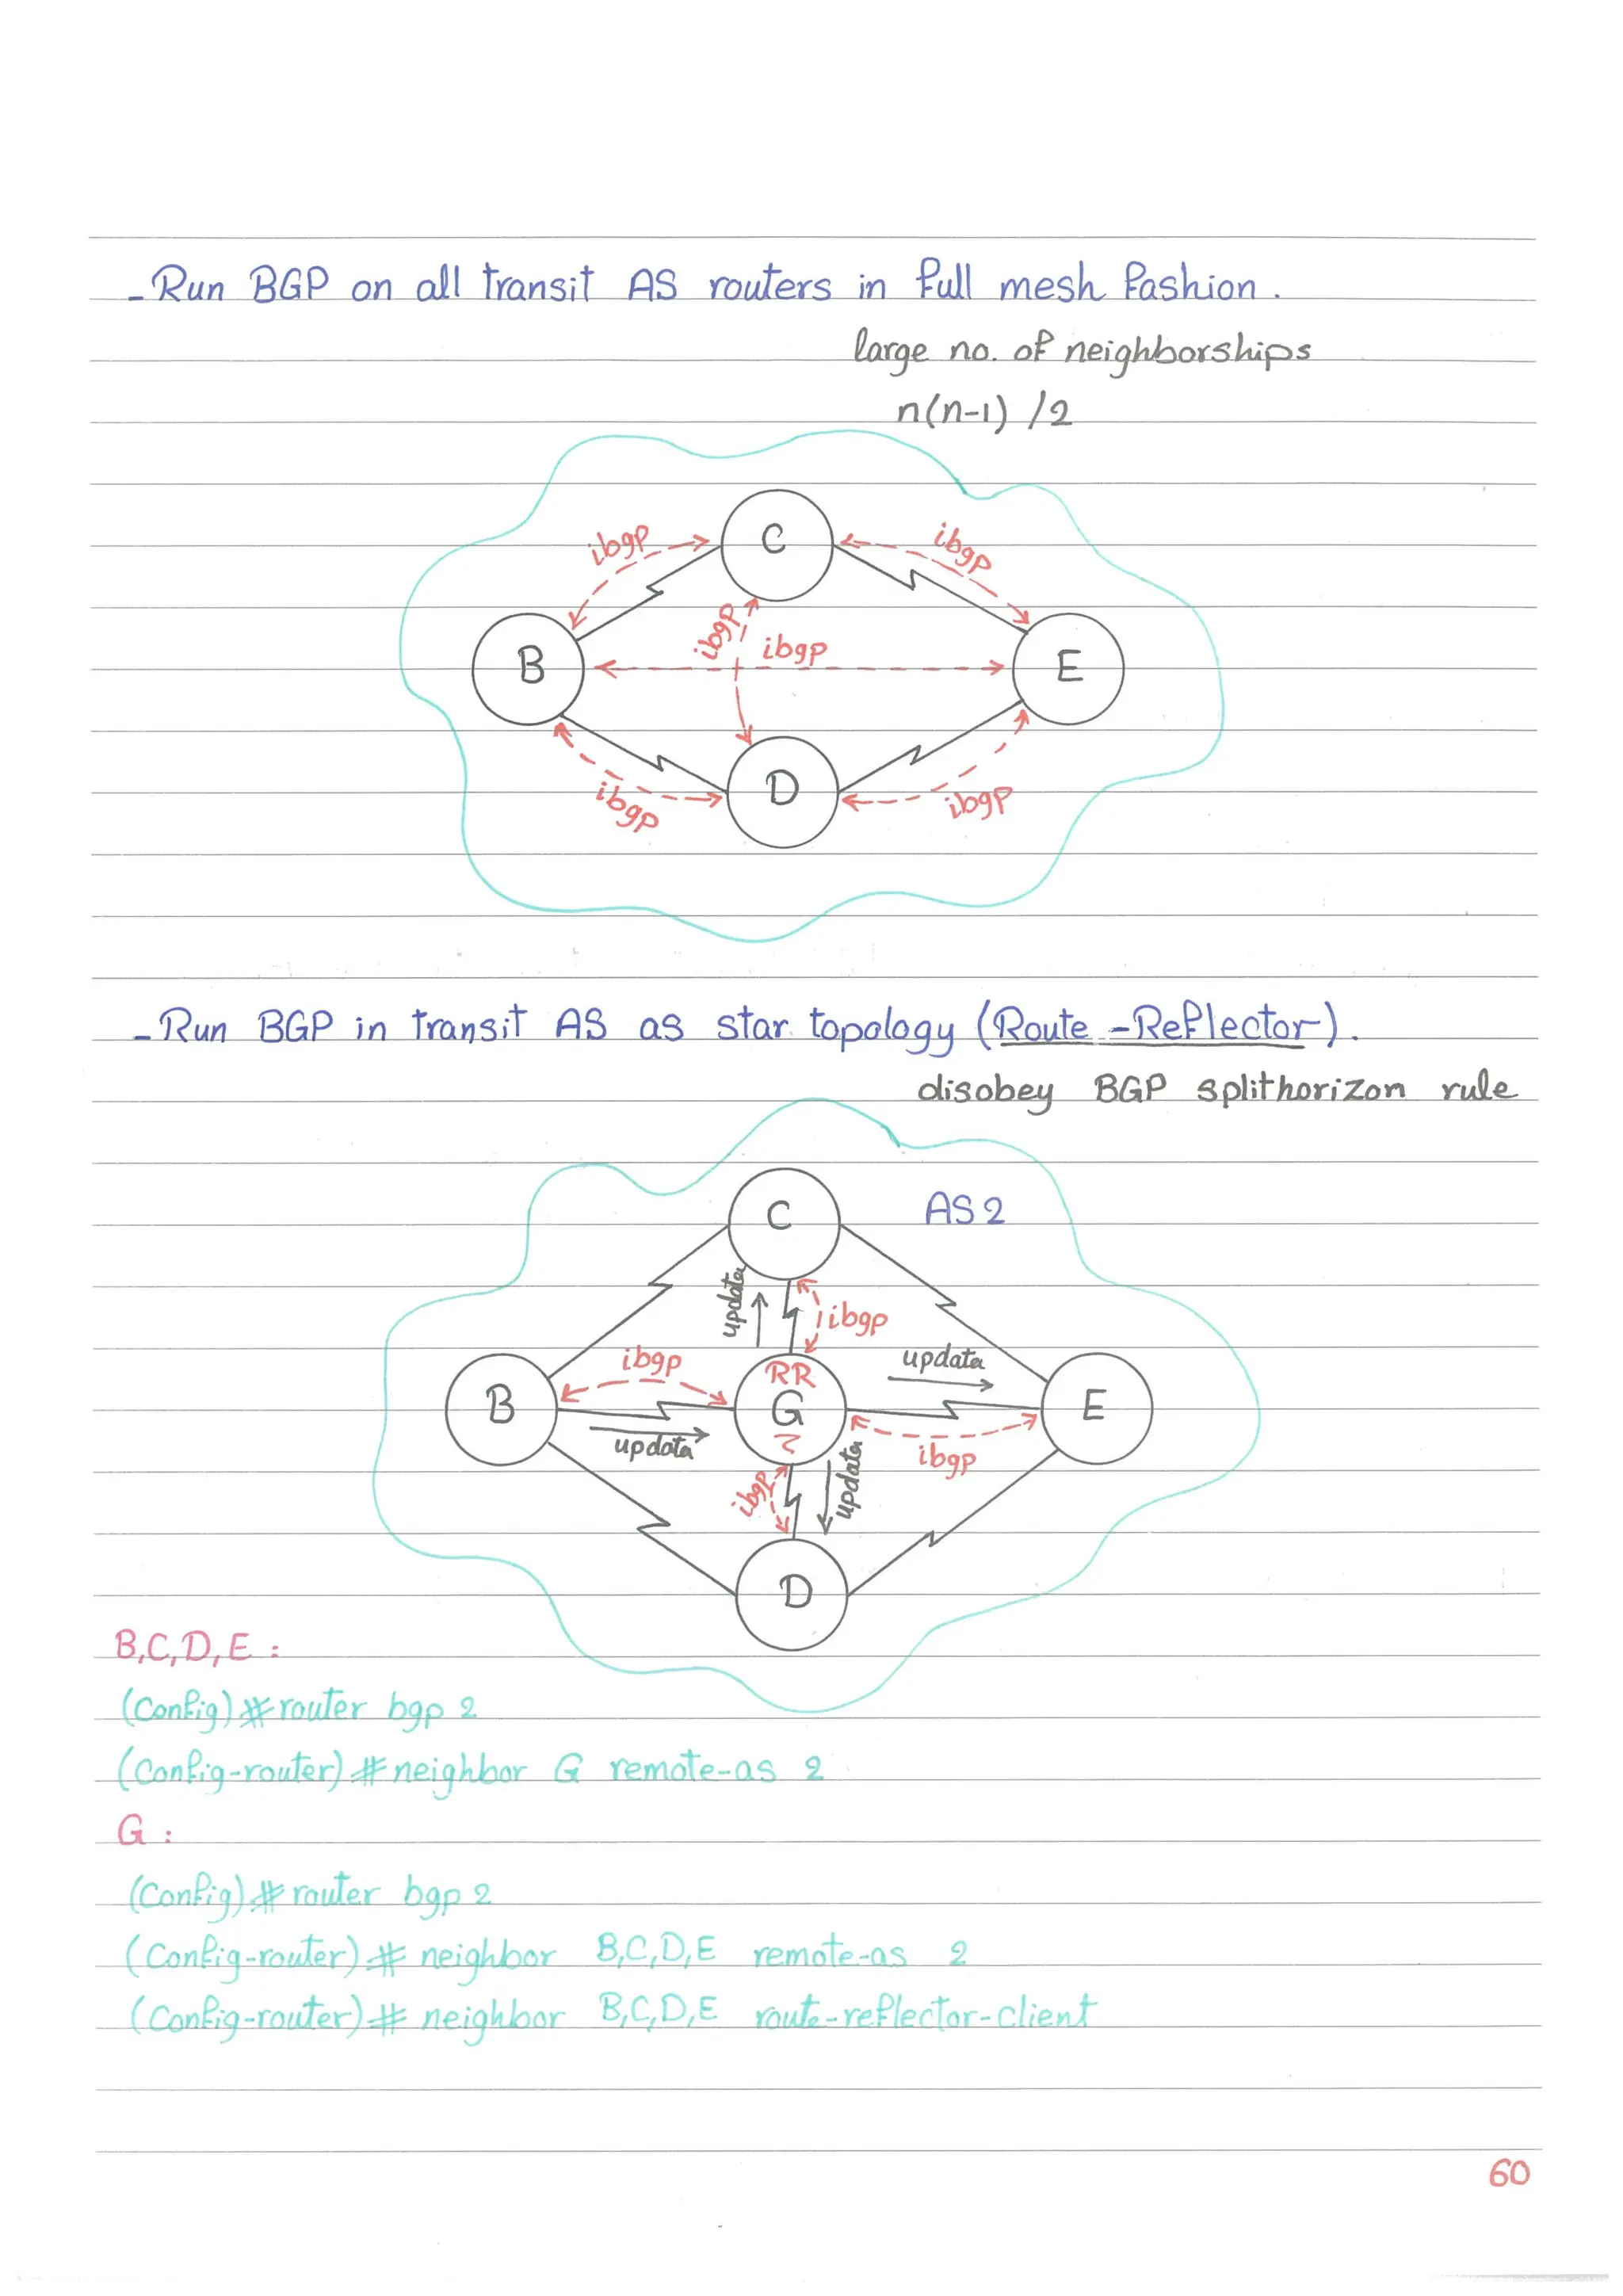 - Run BGP on all transit AS routers in full mesh fashion.
large no. of neighborships
n(n-1) /2
C
ibgp
ibgp
ibgp
ibgp
B
E
D
ibgp
ibgp
- Run BGP in transit AS as star topology (Route - Reflector).
disobey BGP splithorizon rule
C
AS 2
update
ibgp
ibgp
RR
update
B
G
E
update
ibgp
ibgp
update
D
B,C,D,E :
(Config)# router bgp 2
(Config-router)# neighbor G remote-as 2
G :
(Config)# router bgp 2
(Config-router)# neighbor B,C,D,E remote-as 2
(Config-router)# neighbor B,C,D,E route-reflector-client
60